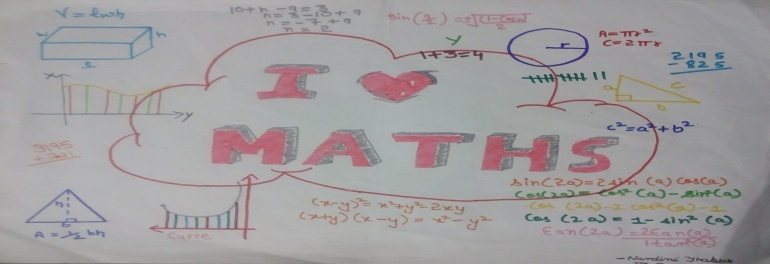 V = lwh
w
h
l
10 + n - 9 = 3
n = 3 - 10 + 9
n = -7 + 9
n = 2
sin(x/2) = ±√(1-cosx)/2
y
1+3=4
r
A = πr²
C = 2πr
2195
- 825
a
c
b
c² = a² + b²
x
y
I ♥
MATHS
3195
h
b
A = 1/2 bh
curve
(x-y)² = x² + y² 2xy
(x+y) (x-y) = x² - y²
sin(2a) = 2 sin (a) cos(a)
cos(2a) = cos² (a) - sin² (a)
cos (2a) - 2 cos² (a) - 1
cos (2a) = 1 - sin² (a)
tan(2a) = 2tan(a)
1tan²(a)
- Nandini